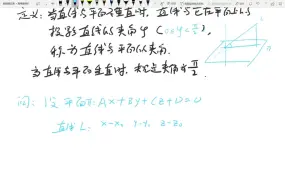 定义：当直线与平面不垂直时，直线与它在平面上的
投影直线的夹角φ (0≤φ<π/2),
称为直线与平面的夹角.
当直线与平面垂直时，规定夹角为π/2.
问：设平面π: Ax+By+Cz+D=0
直线L: x-x₀ y-y₀ z-z₀